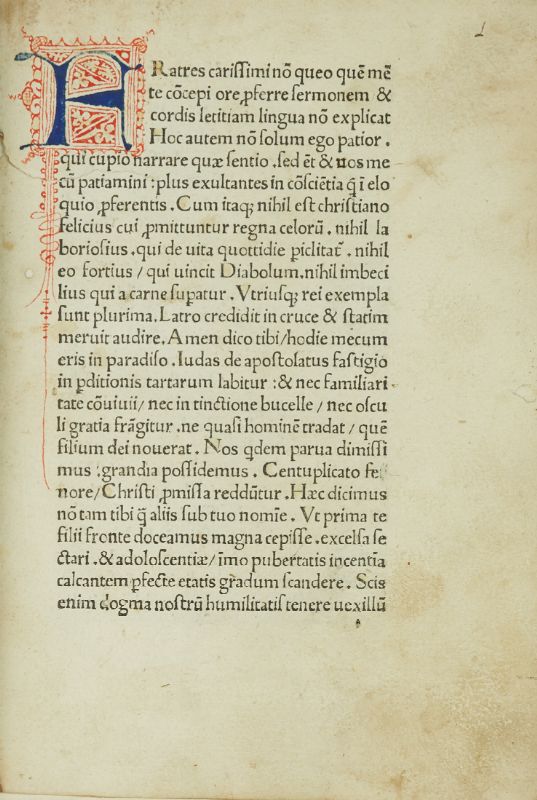 1
FRatres carissimi nō queo quē mē
te cōcepi ore ꝓferre sermonem &
cordis letitiam lingua nō explicat
Hoc autem nō solum ego patior .
qui cupio narrare quæ sentio .sed ēt & uos me
cū patiamini : plus exultantes in cōsciētia q̄ i elo
quio ꝓferentis . Cum itaq; nihil est christiano
felicius cui ꝓmittuntur regna celorū . nihil la
boriosius .qui de uita quottidie piclitat̄ . nihil
eo fortius / qui uincit Diabolum.nihil imbeci
lius qui a carne supatur . Vtriusq; rei exempla
sunt plurima.Latro credidit in cruce & statim
meruit audire. Amen dico tibi/hodie mecum
eris in paradiso . Iudas de apostolatus fastigio
in ꝑditionis tartarum labitur :& nec familiari
tate cōuiuii/ nec in tinctione bucelle / nec oscu
li gratia frāgitur .ne quasi hominē tradat / quē
filium dei nouerat . Nos qdem parua dimissi
mus :grandia possidemus . Centuplicato fe
nore/Christi ꝓmissa reddūtur .Hæc dicimus
nō tam tibi q̄ aliis sub tuo nomīe . Vt prima te
filii fronte doceamus magna cepisse .excelsa se
ctari .& adoloscentiæ/īmo pubertatis incentīa
calcantem ꝑfecte etatis gradum scandere . Scis
enim dogma nostrū humilitatis tenere uexillū